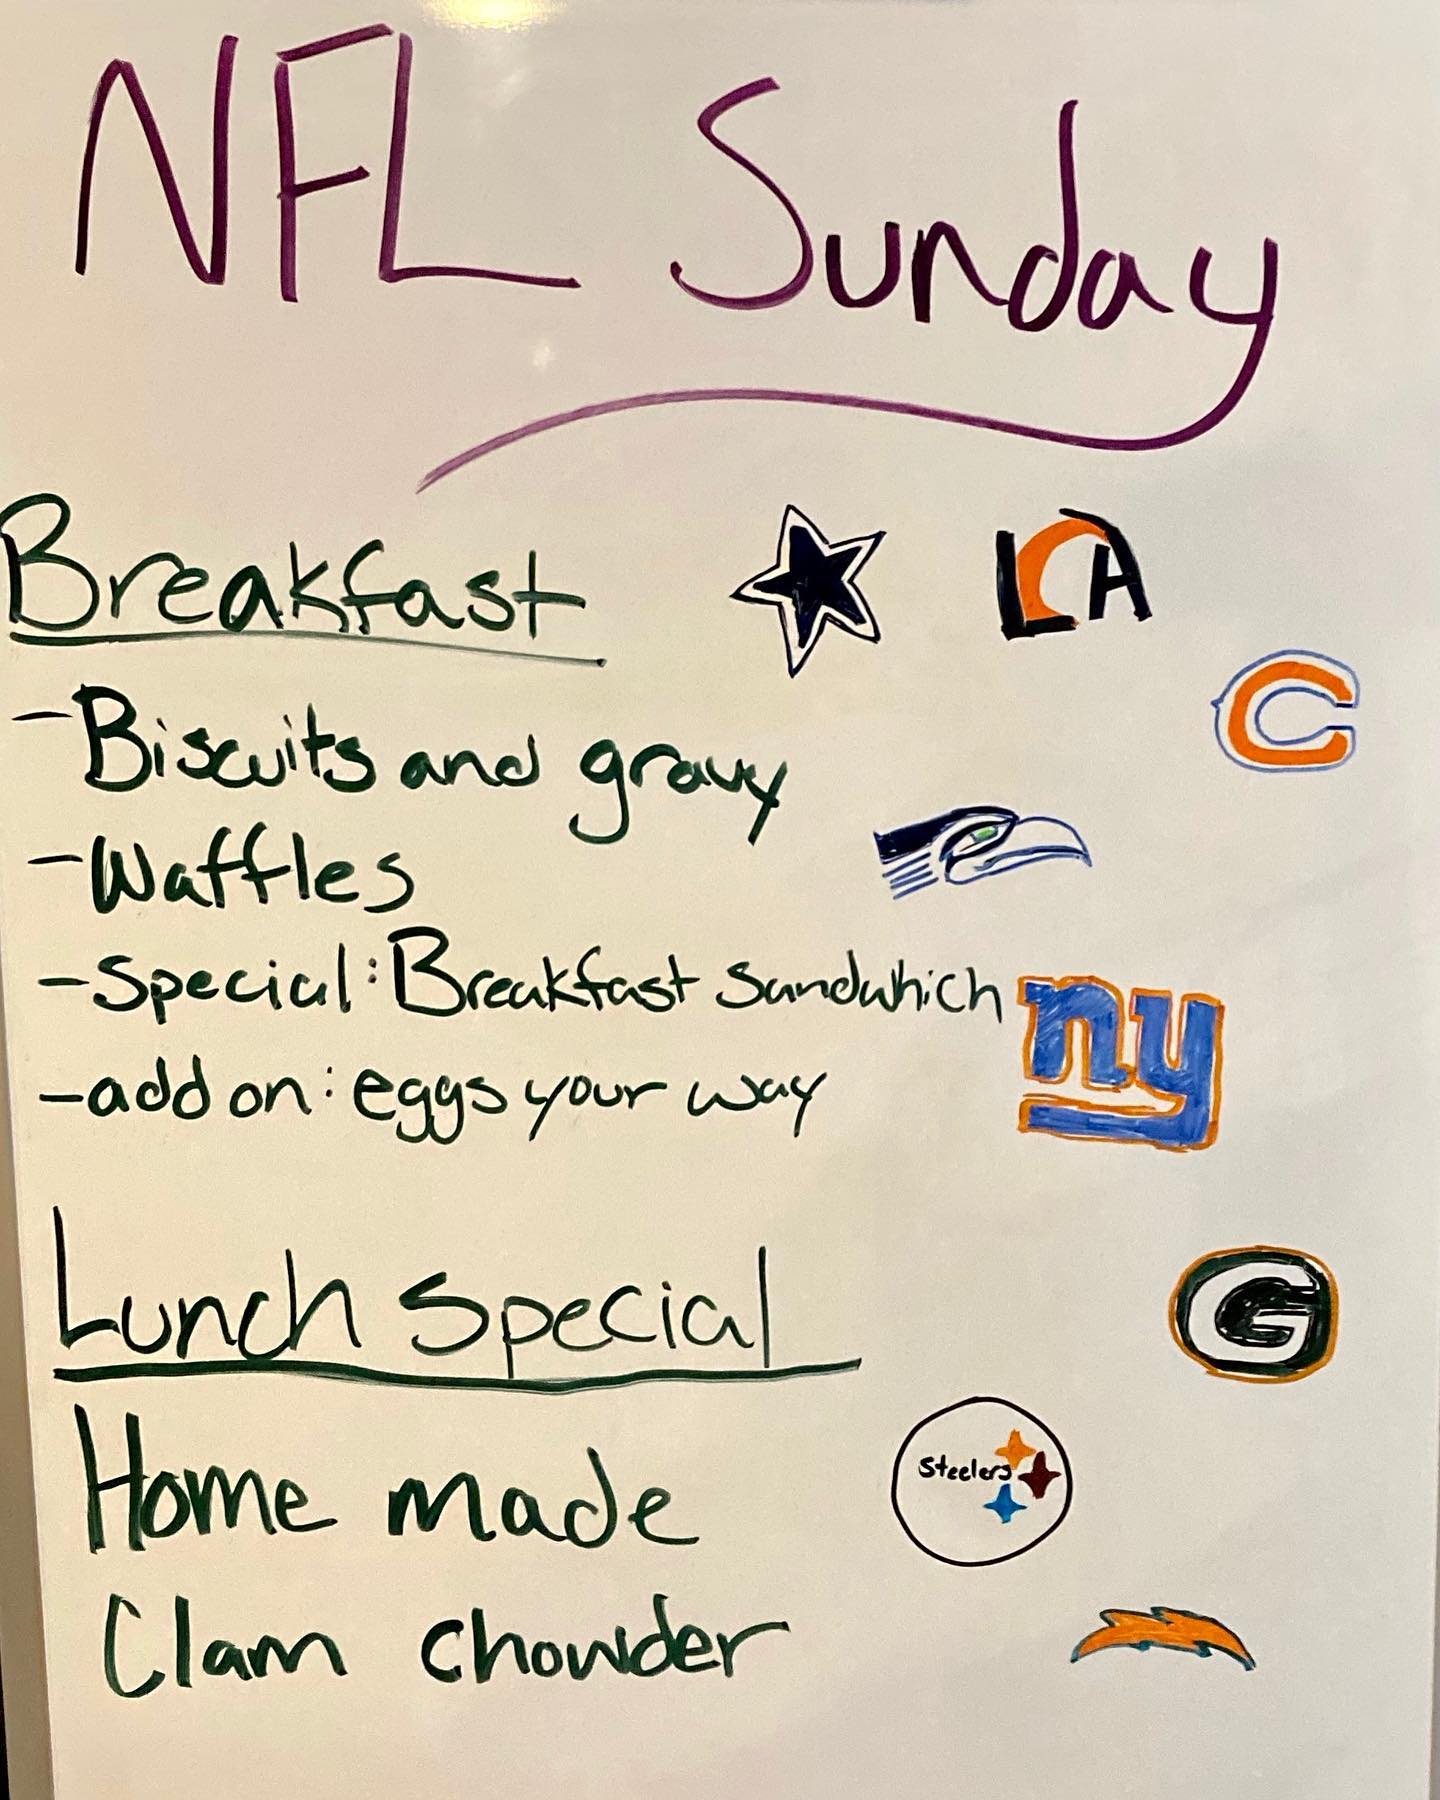 NFL Sunday
Breakfast
LA
- Biscuits and gravy
C
- Waffles
- Special: Breakfast Sandwhich
ny
- add on: eggs your way
Lunch Special
G
Home made
Steelers
Clam chowder